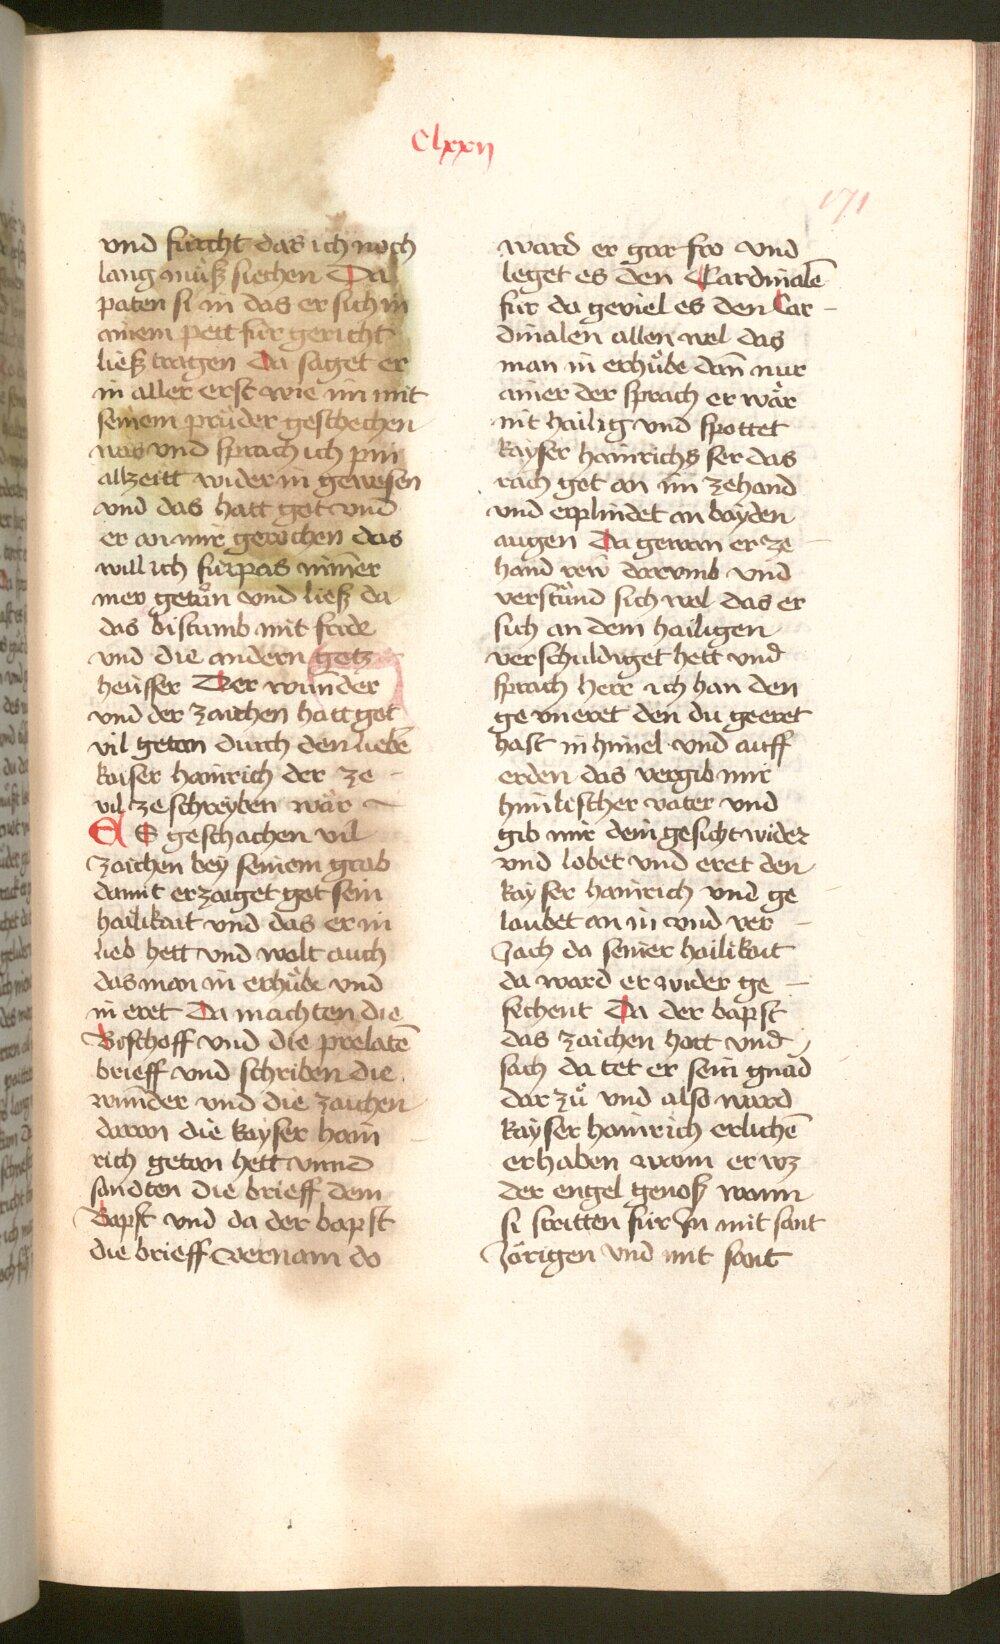 Clxxij
171
vnd furcht das ich noch
lang muͤß siechen Da
paten si in das er sich in
ainem pett fur gericht
ließ tragen Da saget er
in aller erst wie im mit
seinem pruder geschechen
was vnd sprach ich pin
allzeitt wider in gewesen
vnd das hatt got vnd
er an mir gerochen das
will ich furpas nim̄er
mer getůn vnd ließ da
das bistumb mit fride
vnd die andern gotz
heüsser Der wunder
vnd der zaichen hatt got
vil getan durch den liebē
kaiser hainrich der ze
vil ze schreyben wär
Es geschachen vil
zaichen bey seinem grab
damit erzaiget got sein
hailikait vnd das er in
lieb hett vnd wolt auch
das man in erhübe vnd
in eret Da machten die
Bischoff vnd die prelatē
brieff vnd schriben die
wunder vnd die zaichen
daran die kayser hain
rich getan hett vnnd
sandten die brieff dem
Bapst vnd da der bapst
die brieff vernam do
ward er gar fro vnd
leget es den Cardinalē
für da geviel es den Car
dinalen allen wol das
man in erhůbe dañ nur
ainer der sprach er wär
nit hailig vnd spottet
kayser hainrichs ser das
rach got an im zehand
vnd erplindet an bayden
augen Da gewan er ze
hand rew darvmb vnd
verstuͤnd sich wol das er
sich an dem hailigen
verschuldiget hett vnd
sprach herr ich han den
ge vneret den du geeret
hast in himel vnd auff
erden das vergib mir
himlischer vater vnd
gib mir dein gesicht wider
vnd lobet vnd eret den
kayser hainrich vnd ge
laubet an in vnd ver
Jach da seiner hailikait
da ward er wider ge
sechent Da der bapst
das zaichen hort vnd
sach da tet er sein gnad
dar zů vnd also ward
kayser hainrich erlichē
erhaben wann er wz
der engel genoß wann
si stritten für Jn mit sant
Jörigen vnd mit sant